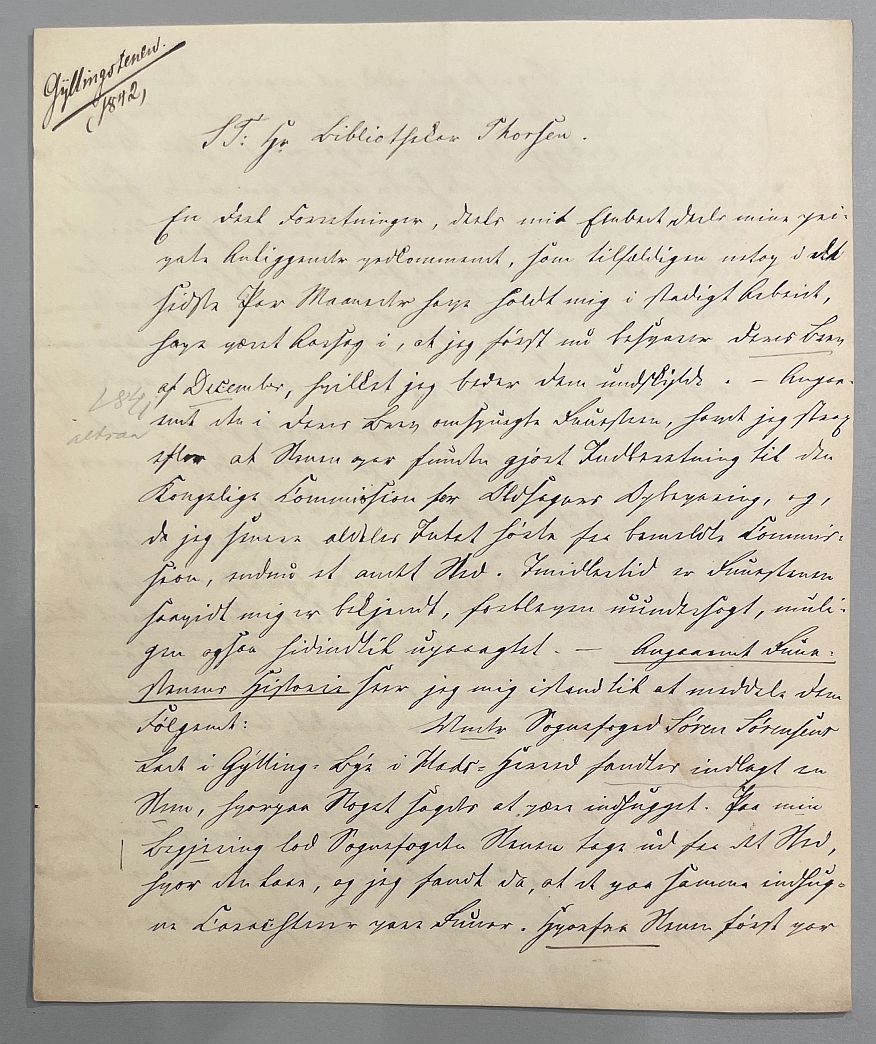 Gyllingstenen.
(1842)
S.T. Hr. Bibliothekar Thorsen.
En Deel Forretninger, deels mit Embed, deels mine pri-
vate Anliggender vedkommende, som tilfældigen netop i det
sidste Par Maaneder have holdt mig i stadigt Arbeid,
have været Aarsag i, at jeg først nu besvarer Deres Brev
af December, hvilket jeg beder Dem undskylde. – Angaa-
1841
altsaa
ende den i Deres Brev omspurgte Runesteen, havde jeg strax
efter at Stenen var funden gjort Indberetning til den
Kongelige Commission for Oldsagers Opbevaring, og,
da jeg senere aldeles Intet hørte fra bemeldte Commis-
sion, endnu et andet Sted. Imidlertid er Runestenen
saavidt mig er bekjendt, forbleven uundersøgt, muli-
gen ogsaa hidindtil upaaagtet. – Angaaende Rune-
stenens Historie seer jeg mig istand til at meddele Dem
Følgende: Under Sognefoged Søren Sørensens
Led i Gylling-Bye i Hads-Herred fandtes indlagt en
Steen, hvorpaa Noget sagdes at være indhugget. Paa min
Begjering lod Sognefogden Stenen tage ud fra det Sted,
hvor den laae, og jeg fandt da, at de paa samme indhug-
ne Carachterer vare Runer. Hvorfra Stenen først var